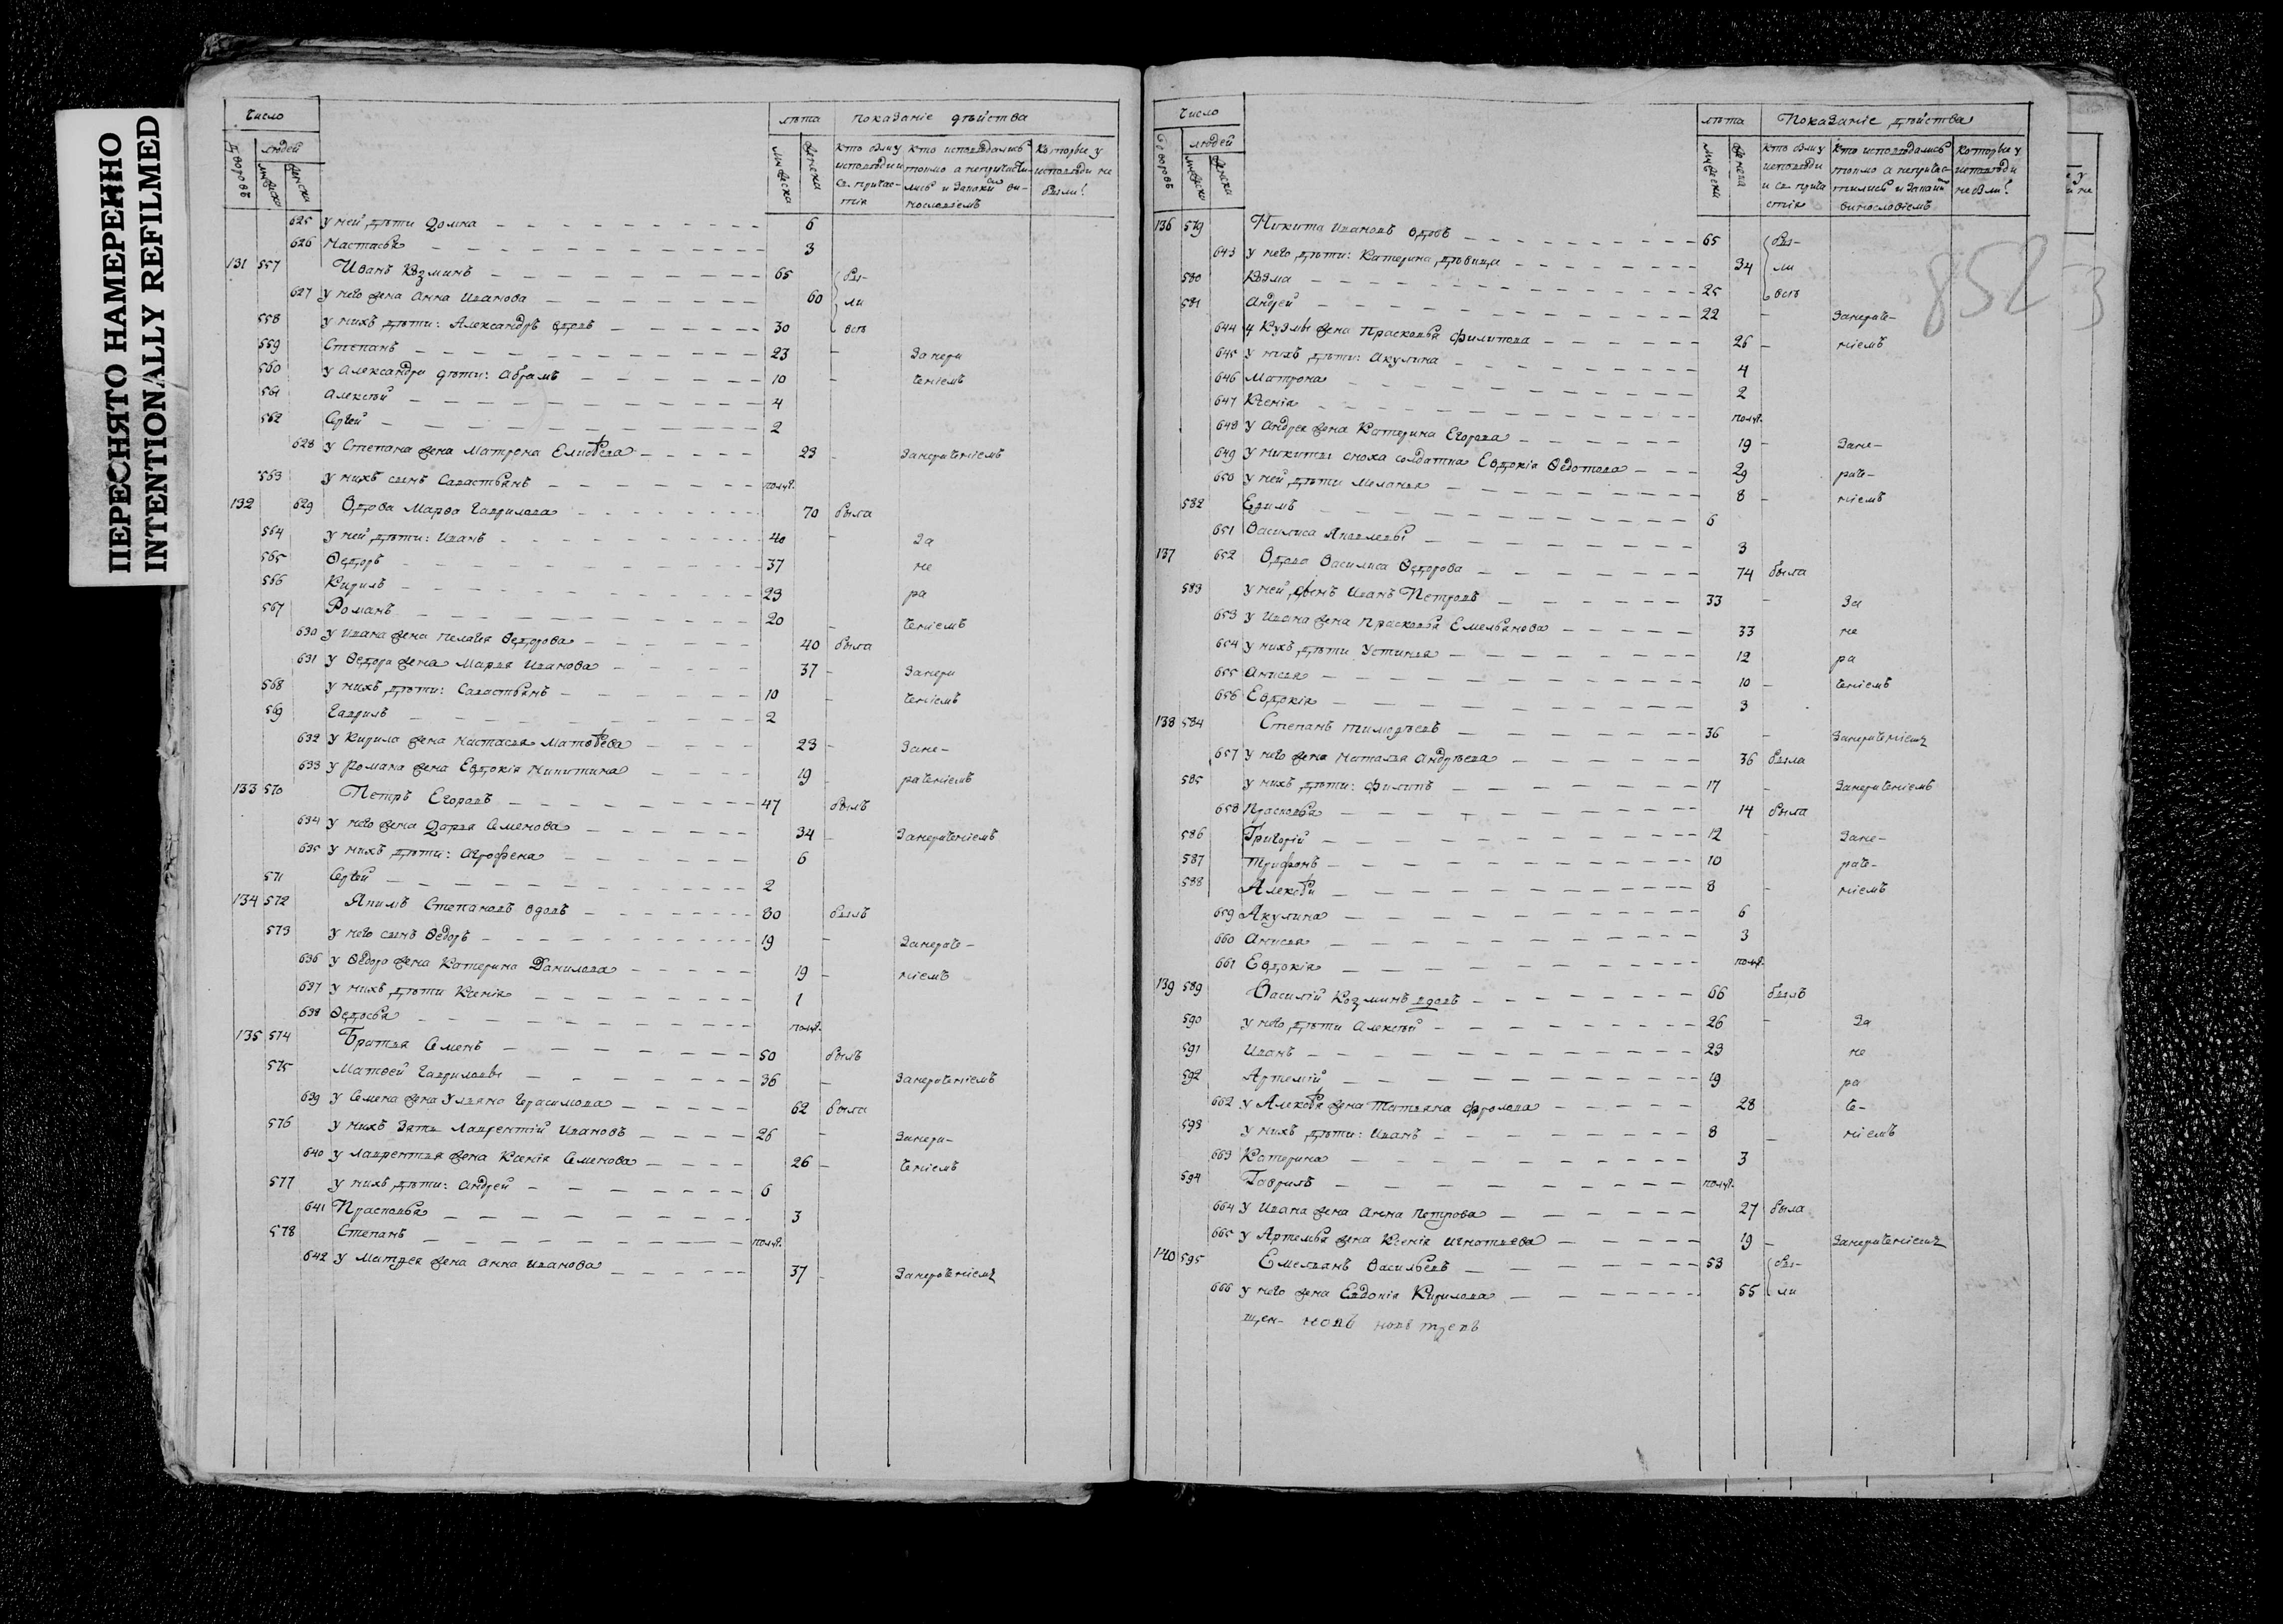 ПЕРЕСНЯТО НАМЕРЕННО
INTENTIONALLY REFILMED
Число лѣта показаніе дѣйства
дворовъ людей мужеска женска мужеска женска
кто были у исповѣди и св. причастія
кто исповѣдались токмо а непричастились и за каким винословіемъ
Которые у исповѣди не были?
625 у ней дѣти Домна 6
626 Настасья 3
131 557 Иванъ Козминъ 65 бы-
627 у него жена Анна Иванова 60 ли
558 у нихъ дѣти: Александръ вдовъ 30 всѣ
559 Степанъ 23 - За нера
560 у Александра дѣти: Абрамъ 10 - ченіемъ
561 Алексѣй 4
562 Сергѣй 2
628 у Степана жена Матрона Елисѣева 23 - Занераченіемъ
563 у нихъ сынъ Савастьянъ полуг.
132 629 Вдова Марѳа Гаврилова 70 была
564 у ней дѣти: Иванъ 40 - За
565 Ѳедоръ 37 не
566 Кирилъ 23 ра
567 Романъ 20 - ченіемъ
630 у Ивана жена Пелагея Ѳедорова 40 была
631 у Ѳедора жена Марья Иванова 37 - Занера
568 у нихъ дѣти: Савастьянъ 10 - ченіемъ
569 Гаврилъ 2
632 у Кирила жена Настасья Матвѣева 23 - Зане-
633 у Романа жена Евдокія Никитина 19 - раченіемъ
133 570 Петръ Егоровъ 47 былъ
634 у него жена Дарья Семенова 34 - Занераченіемъ
635 у нихъ дѣти: Агрофена 6
571 Сергѣй 2
134 572 Якимъ Степановъ вдовъ 80 былъ
573 у него сынъ Ѳедоръ 19 - Занераче-
636 у Ѳедора жена Катерина Данилова 19 - ніемъ
637 у нихъ дѣти Ксенія 1
638 Ѳедосья полуг.
135 574 Братья Семенъ 50 былъ
575 Матвей Гавриловы 36 - Занераченіемъ
639 у Семена жена Ульяна Герасимова 62 была
576 у нихъ Зять Лаврентій Ивановъ 26 - Занера-
640 у Лаврентья жена Ксенія Семенова 26 - ченіемъ
577 у нихъ дѣти: Андрей 6
641 Прасковья 3
578 Степанъ полуг.
642 у Матвея жена Анна Иванова 37 - Занераченіемъ
Число лѣта Показаніе дѣйства
дворовъ людей мужеска женска мужеска женска
кто были у исповѣди и св. прича стія
кто исповѣдались токмо а непричастились и за каким винословіемъ
которые у исповѣди не были?
8523
136 579 Никита Ивановъ вдовъ 65 бы-
643 у него дѣти: Катерина дѣвица 34 ли
580 Козма 25 всѣ
581 Андрей 22 - Занераче-
644 у Кузмы жена Прасковья Филипова 26 - ніемъ
645 у нихъ дѣти: Акулина 4
646 Матрона 2
647 Ксенія полуг.
648 у Андрея жена Катерина Егорова 19 - Зане-
649 у Никиты сноха солдатка Евдокія Ѳедотова 29 раче-
650 у ней дѣти Меланья 8 - ніемъ
582 Ефимъ 6
651 Василиса Яковлевы 3
137 652 Вдова Василиса Ѳедорова 74 была
583 у ней сынъ Иванъ Петровъ 33 - За
653 у Ивана жена Прасковья Емельянова 33 не
654 у нихъ дѣти Устинья 12 ра
655 Анисья 10 - ченіемъ
656 Евдокія 3
138 584 Степанъ Тимофѣевъ 36 - Занераченіемъ
657 у него жена Наталья Андрѣева 36 была
585 у нихъ дѣти: Филипъ 17 - Занераченіемъ
658 Прасковья 14 была
586 Григорій 12 - Зане-
587 Трифонъ 10 раче-
588 Алексѣй 8 - ніемъ
659 Акулина 6
660 Анисья 3
661 Евдокія полуг.
139 589 Василій Козминъ вдовъ 66 былъ
590 у него дѣти Алексѣй 26 - За
591 Иванъ 23 не
592 Артемій 19 ра
662 у Алексѣя жена Татьяна Фролова 28 че-
593 у нихъ дѣти: Иванъ 8 - ніемъ
663 Катерина 3
594 Гаврилъ полуг.
664 у Ивана жена Анна Петрова 27 была
665 у Артемья жена Ксенія Игнатьева 19 - Занераченіемъ
140 595 Емельянъ Васильевъ 53 бы-
666 у него жена Евдокія Кирилова 55 ли